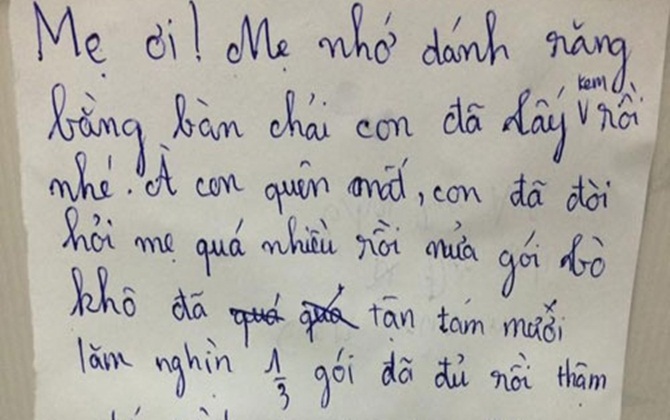 Mẹ ơi! Mẹ nhớ dánh răng
bằng bàn chải con đã lấy kem rồi
nhé. À con quên mất, con đã đòi
hỏi mẹ quá nhiều rồi nửa gói bò
khô đã quá quá tận tám mười
lăm nghìn 1/3 gói đã đủ rồi thậm